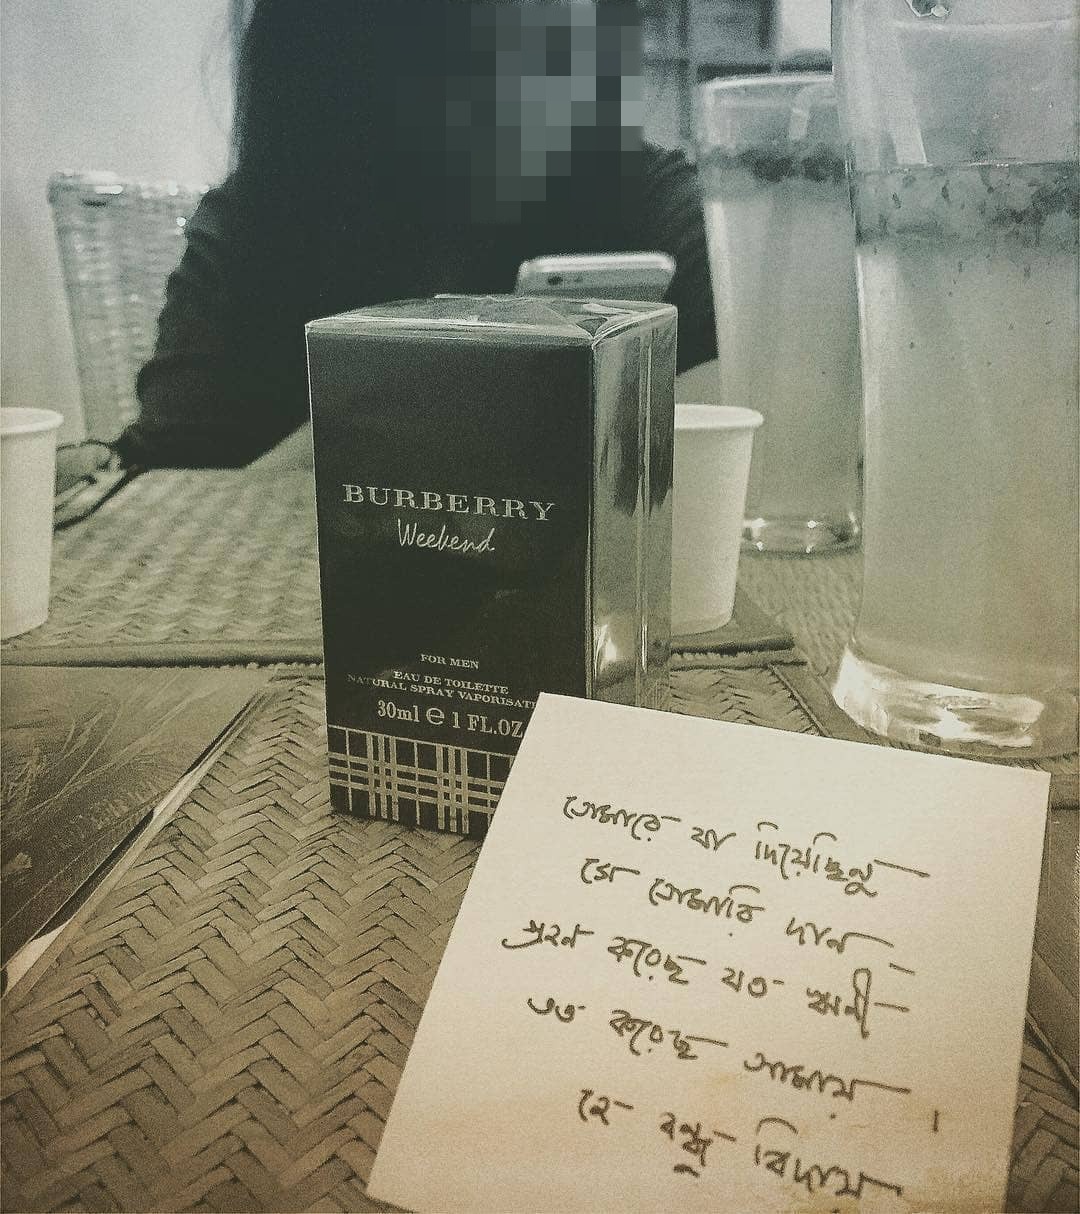 BURBERRY
Weekend
FOR MEN
EAU DE TOILETTE
NATURAL SPRAY VAPORISAT
30ml e 1 FL.OZ
তোমারে যা দিয়েছিনু
সে তোমারি দান
গ্রহন করেছ যত ঋনী
তত করেছ আমায়।
হে বন্ধু বিদায়